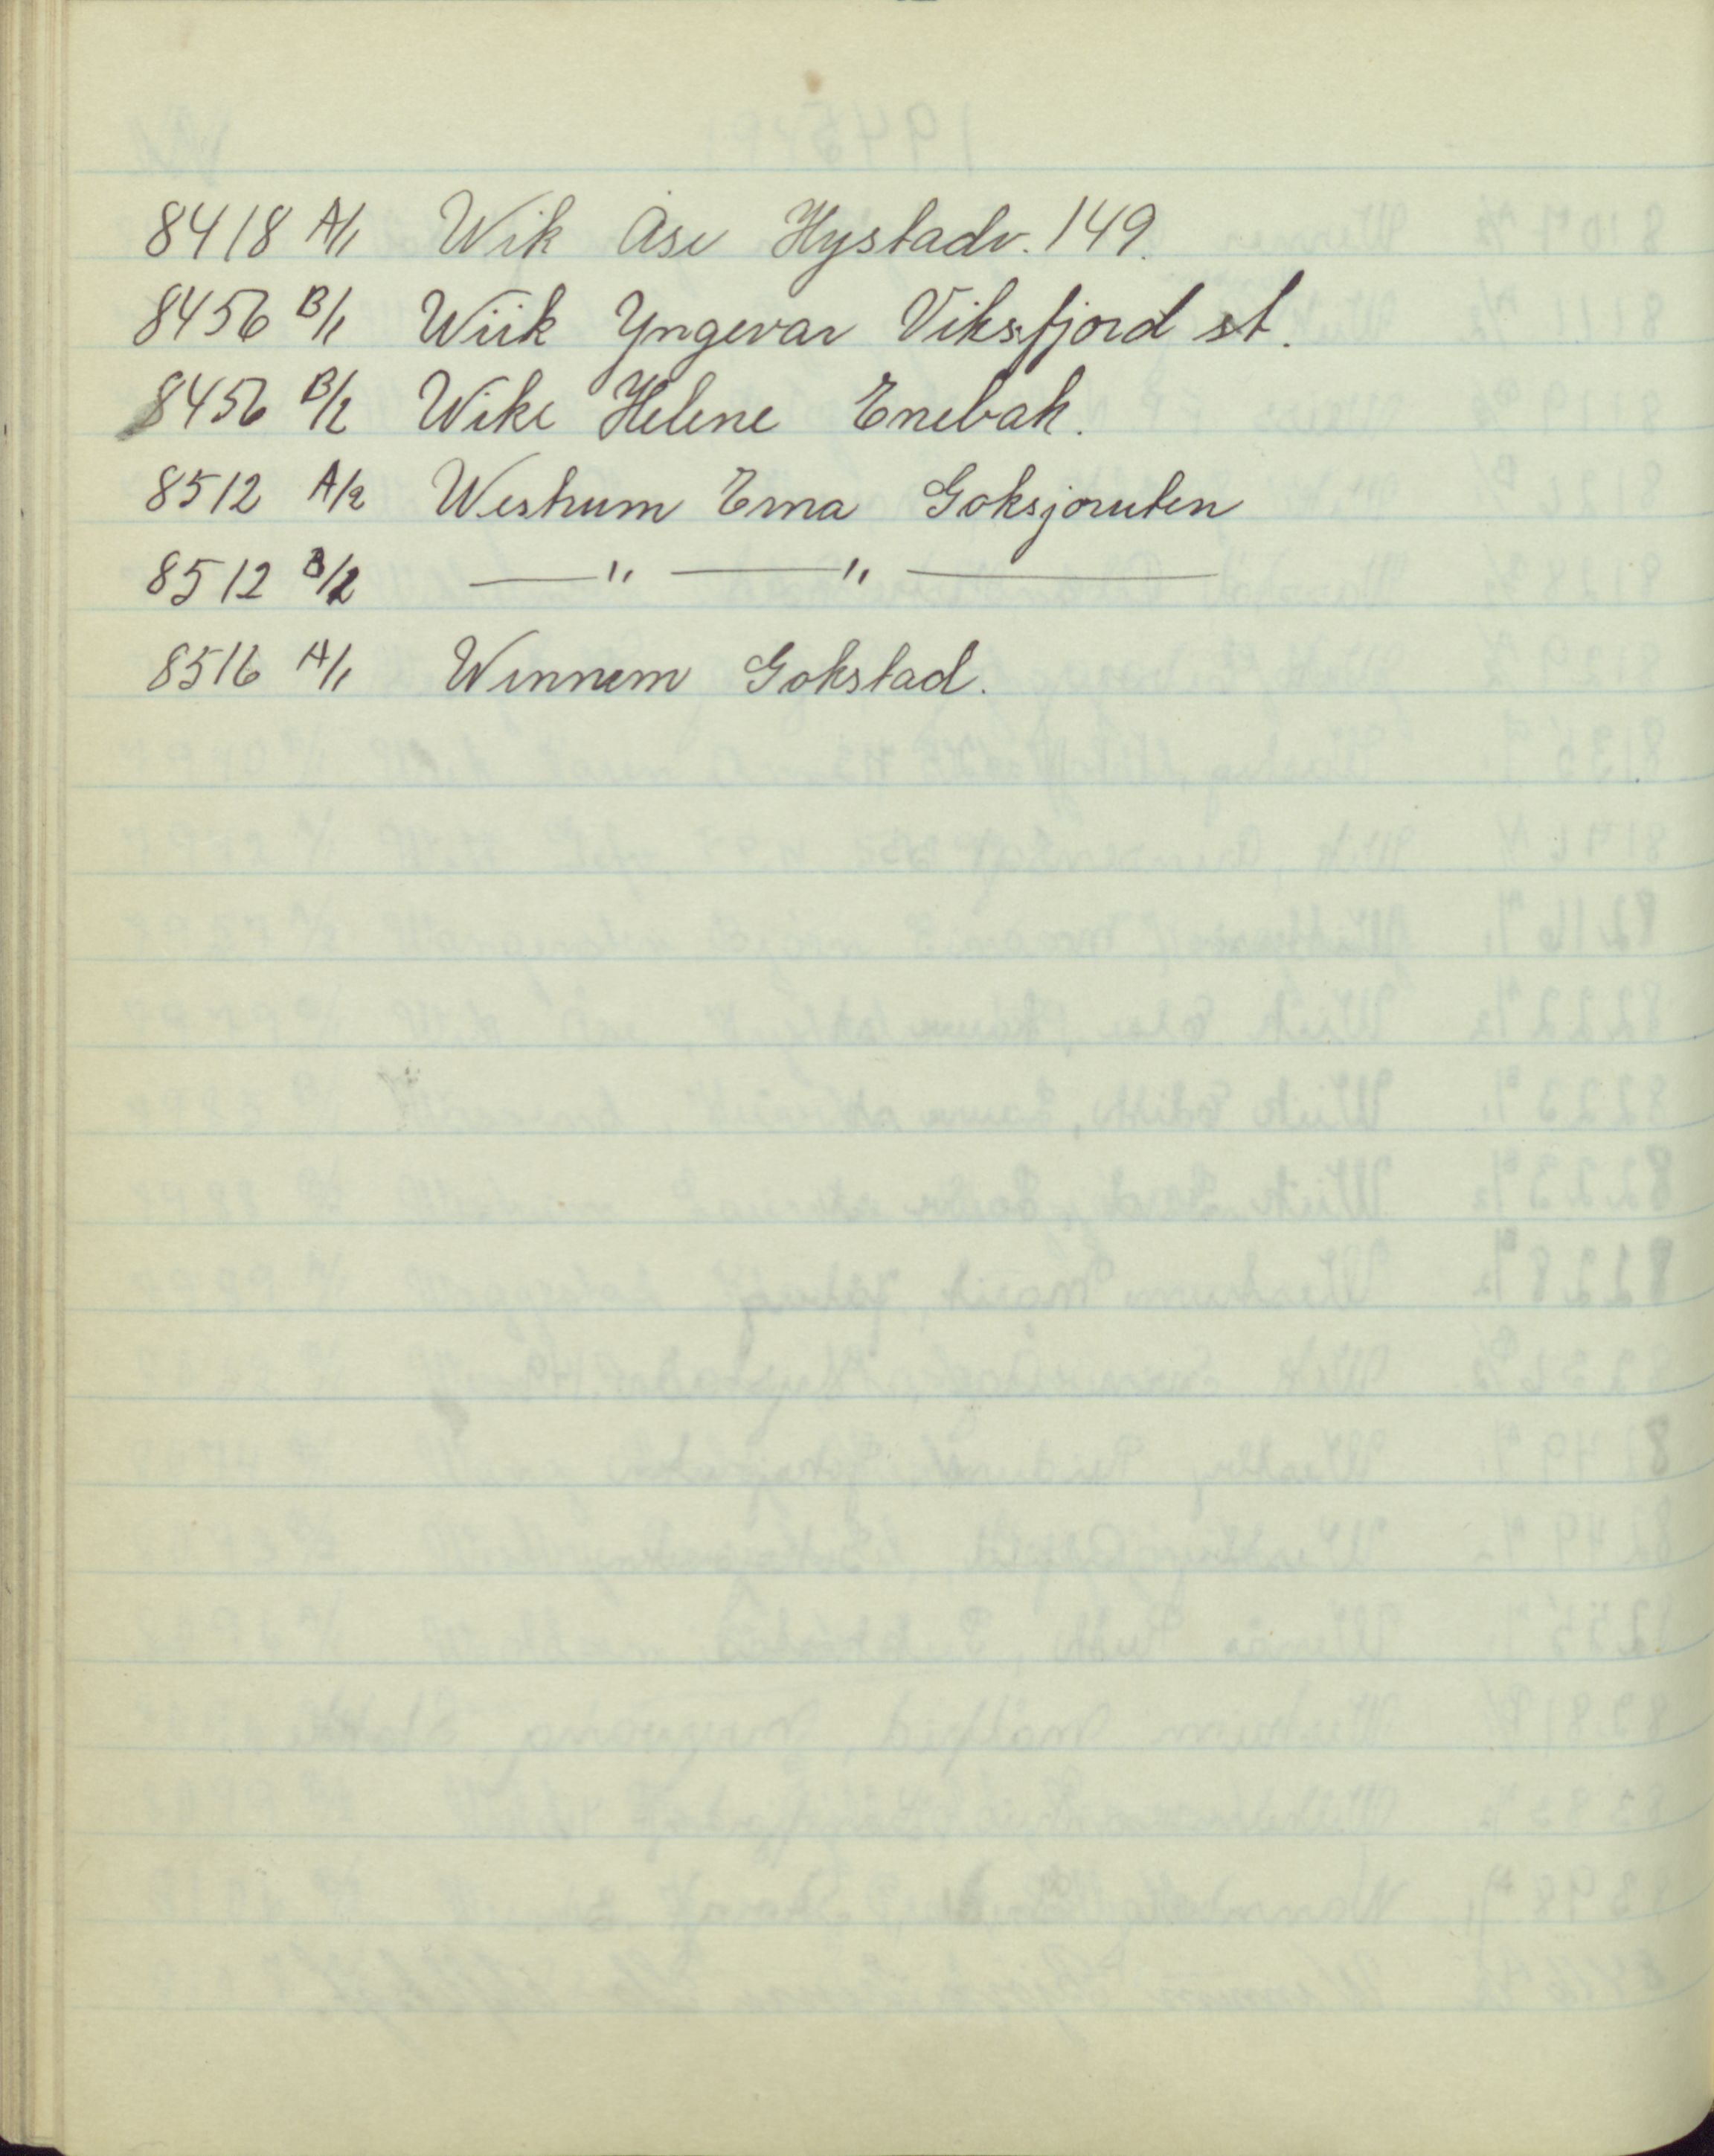 8418 A/1 Wik Åse Hystadv. 149.
8456 B/1 Wiik Yngevar Viksfjord st.
8456 B/2 Wike Helene Enebak.
8512 A/2 Westrum Erna Goksjoruten
8512 B/2 —— " —— " ——
8516 A/1 Winnem Gokstad.